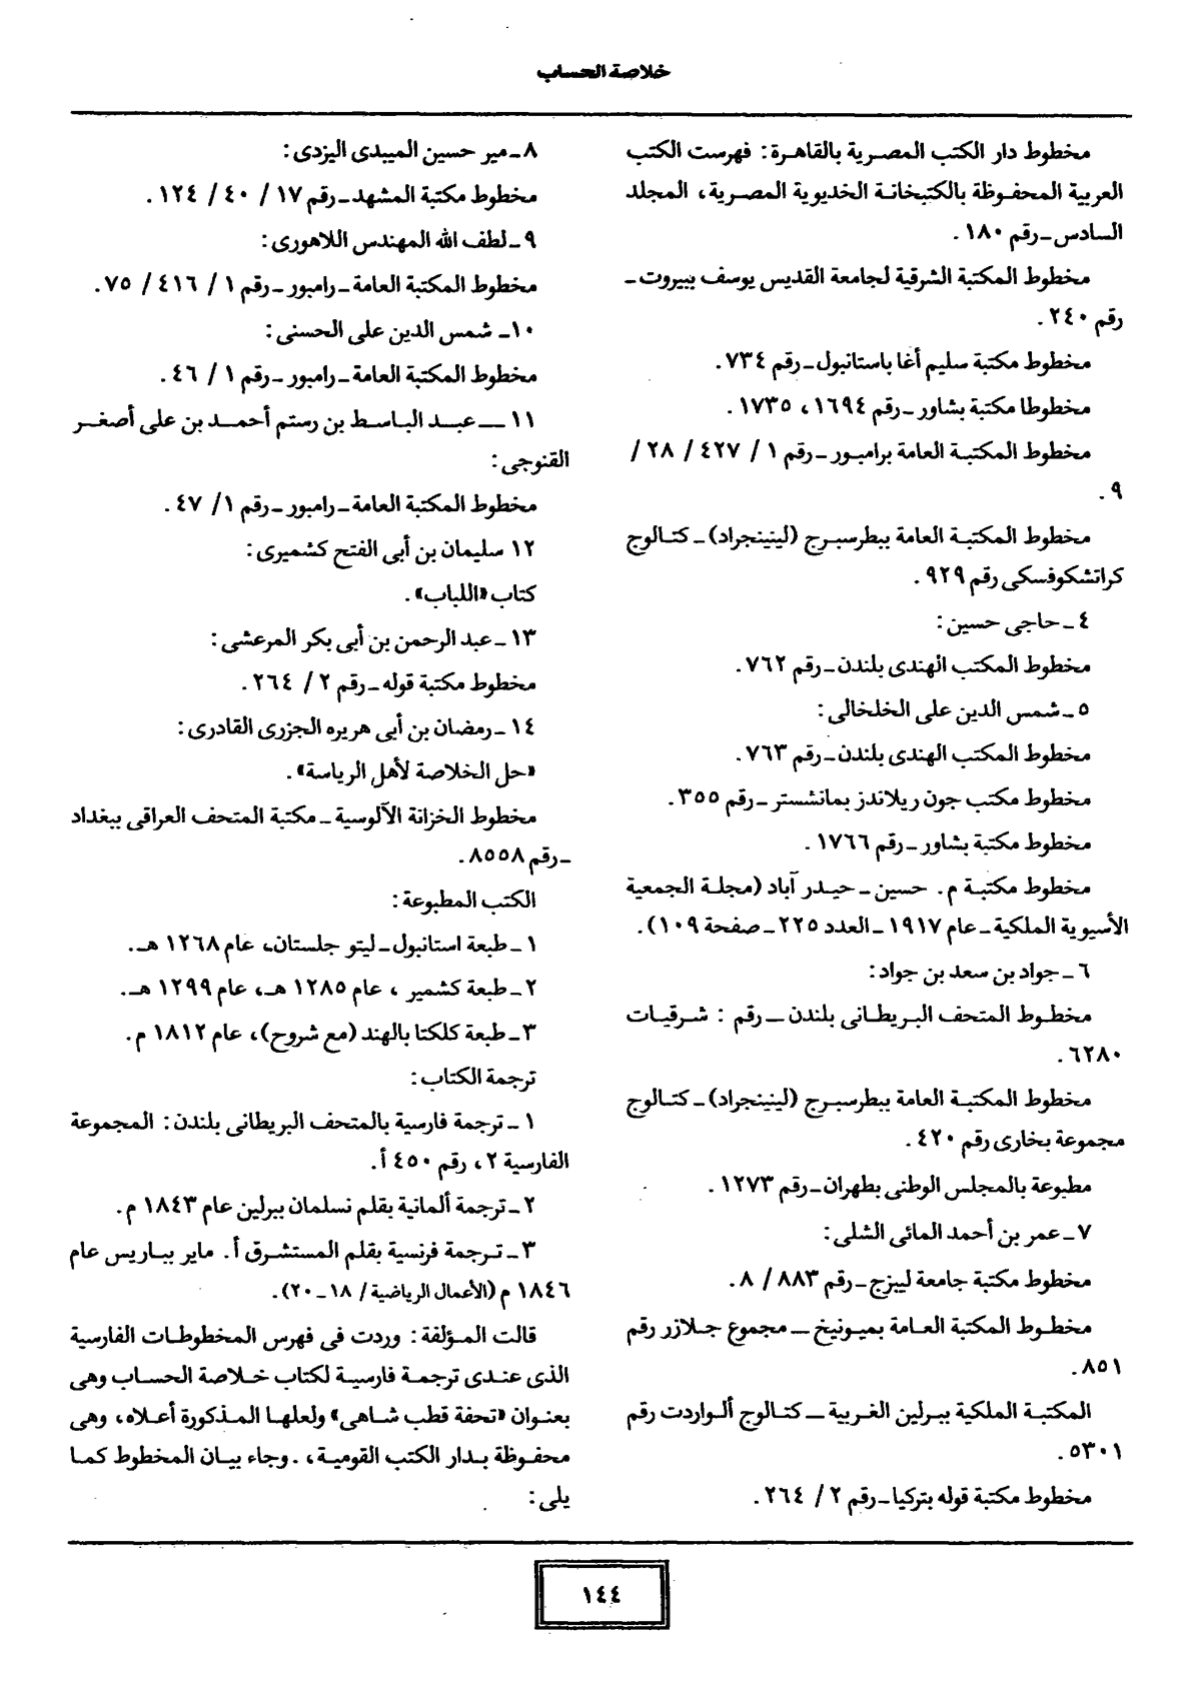 خلاصة الحساب
مخطوط دار الكتب المصرية بالقاهرة: فهرست الكتب
العربية المحفوظة بالكتبخانة الخديوية المصرية، المجلد
السادس ـ رقم ١٨٠.
مخطوط المكتبة الشرقية لجامعة القديس يوسف ببيروت ـ
رقم ٢٤٠.
مخطوط مكتبة سليم أغا باستانبول ـ رقم ٧٣٤.
مخطوطا مكتبة بشاور ـ رقم ١٦٩٤، ١٧٣٥.
مخطوط المكتبة العامة برامبور ـ رقم ١ / ٤٢٧ / ٢٨ /
٩.
مخطوط المكتبة العامة ببطرسبرج (لينينجراد) ـ كتالوج
كراتشكوفسكى رقم ٩٢٩.
٤ ـ حاجى حسين:
مخطوط المكتب الهندى بلندن ـ رقم ٧٦٢.
٥ ـ شمس الدين على الخلخالى:
مخطوط المكتب الهندى بلندن ـ رقم ٧٦٣.
مخطوط مكتب جون ريلاندز بمانشستر ـ رقم ٣٥٥.
مخطوط مكتبة بشاور ـ رقم ١٧٦٦.
مخطوط مكتبة م. حسين ـ حيدر آباد (مجلة الجمعية
الأسيوية الملكية ـ عام ١٩١٧ ـ العدد ٢٢٥ ـ صفحة ١٠٩).
٦ ـ جواد بن سعد بن جواد:
مخطوط المتحف البريطانى بلندن ـ رقم : شرقيات
٦٢٨٠.
مخطوط المكتبة العامة ببطرسبرج (لينينجراد) ـ كتالوج
مجموعة بخارى رقم ٤٢٠.
مطبوعة بالمجلس الوطنى بطهران ـ رقم ١٢٧٣.
٧ ـ عمر بن أحمد المائى الشلى:
مخطوط مكتبة جامعة ليبزج ـ رقم ٨٨٣ / ٨.
مخطوط المكتبة العامة بميونيخ ـ مجموع جلازر رقم
٨٥١.
المكتبة الملكية ببرلين الغربية ـ كتالوج ألواردت رقم
٥٣٠١.
مخطوط مكتبة قوله بتركيا ـ رقم ٢ / ٢٦٤.
٨ ـ مير حسين الميبدى اليزدى:
مخطوط مكتبة المشهد ـ رقم ١٧ / ٤٠ / ١٢٤.
٩ ـ لطف الله المهندس اللاهورى:
مخطوط المكتبة العامة ـ رامبور ـ رقم ١ / ٤١٦ / ٧٥.
١٠ ـ شمس الدين على الحسنى:
مخطوط المكتبة العامة ـ رامبور ـ رقم ١ / ٤٦.
١١ ـ عبد الباسط بن رستم أحمد بن على أصغر
القنوجى:
مخطوط المكتبة العامة ـ رامبور ـ رقم ١/ ٤٧.
١٢ سليمان بن أبى الفتح كشميرى:
كتاب «اللباب».
١٣ ـ عبد الرحمن بن أبى بكر المرعشى:
مخطوط مكتبة قوله ـ رقم ٢ / ٢٦٤.
١٤ ـ رمضان بن أبى هريره الجزرى القادرى:
«حل الخلاصة لأهل الرياسة».
مخطوط الخزانة الآلوسية ـ مكتبة المتحف العراقى ببغداد
ـ رقم ٨٥٥٨.
الكتب المطبوعة:
١ ـ طبعة استانبول ـ ليتو جلستان، عام ١٢٦٨ هـ.
٢ ـ طبعة كشمير ، عام ١٢٨٥ هـ، عام ١٢٩٩ هـ.
٣ ـ طبعة كلكتا بالهند (مع شروح)، عام ١٨١٢ م.
ترجمة الكتاب:
١ ـ ترجمة فارسية بالمتحف البريطانى بلندن: المجموعة
الفارسية ٢، رقم ٤٥٠ أ.
٢ ـ ترجمة ألمانية بقلم نسلمان ببرلين عام ١٨٤٣ م.
٣ ـ ترجمة فرنسية بقلم المستشرق أ. ماير بباريس عام
١٨٤٦ م (الأعمال الرياضية / ١٨ ـ ٢٠).
قالت المؤلفة: وردت فى فهرس المخطوطات الفارسية
الذى عندى ترجمة فارسية لكتاب خلاصة الحساب وهى
بعنوان «تحفة قطب شاهى» ولعلها المذكورة أعلاه، وهى
محفوظة بدار الكتب القومية، . وجاء بيان المخطوط كما
يلى:
١٤٤